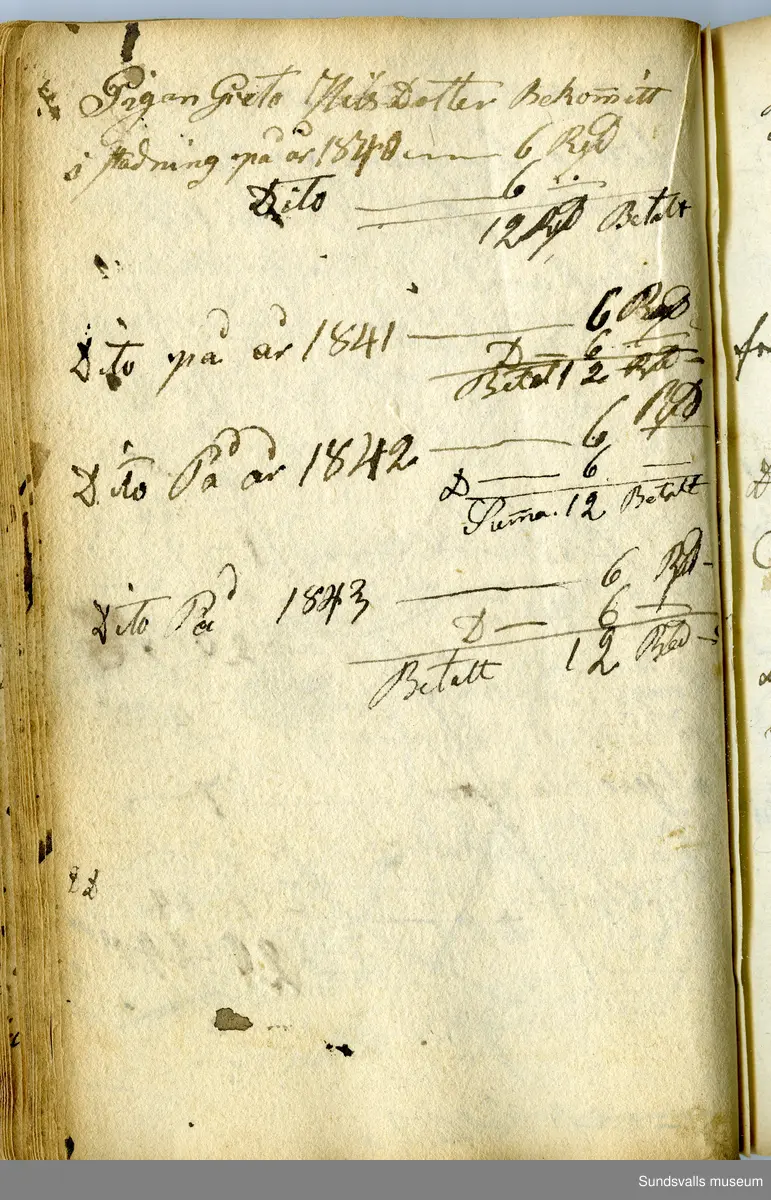 Pigan Greta Nils Dotter Bekomitt
i städning på år 1840 — 6 Rgd
Dito — 6
12 Rgd Betalt
Dito på år 1841 — 6 Rgd
D — 6 —
Betal 12 Rd —
Dito På år 1842 — 6 Rgd
D — 6 —
Suma. 12 Betalt
Dito På 1843 — 6 Rgd —
D — 6 —
Betalt 12 Rd —
Sundsvalls museum